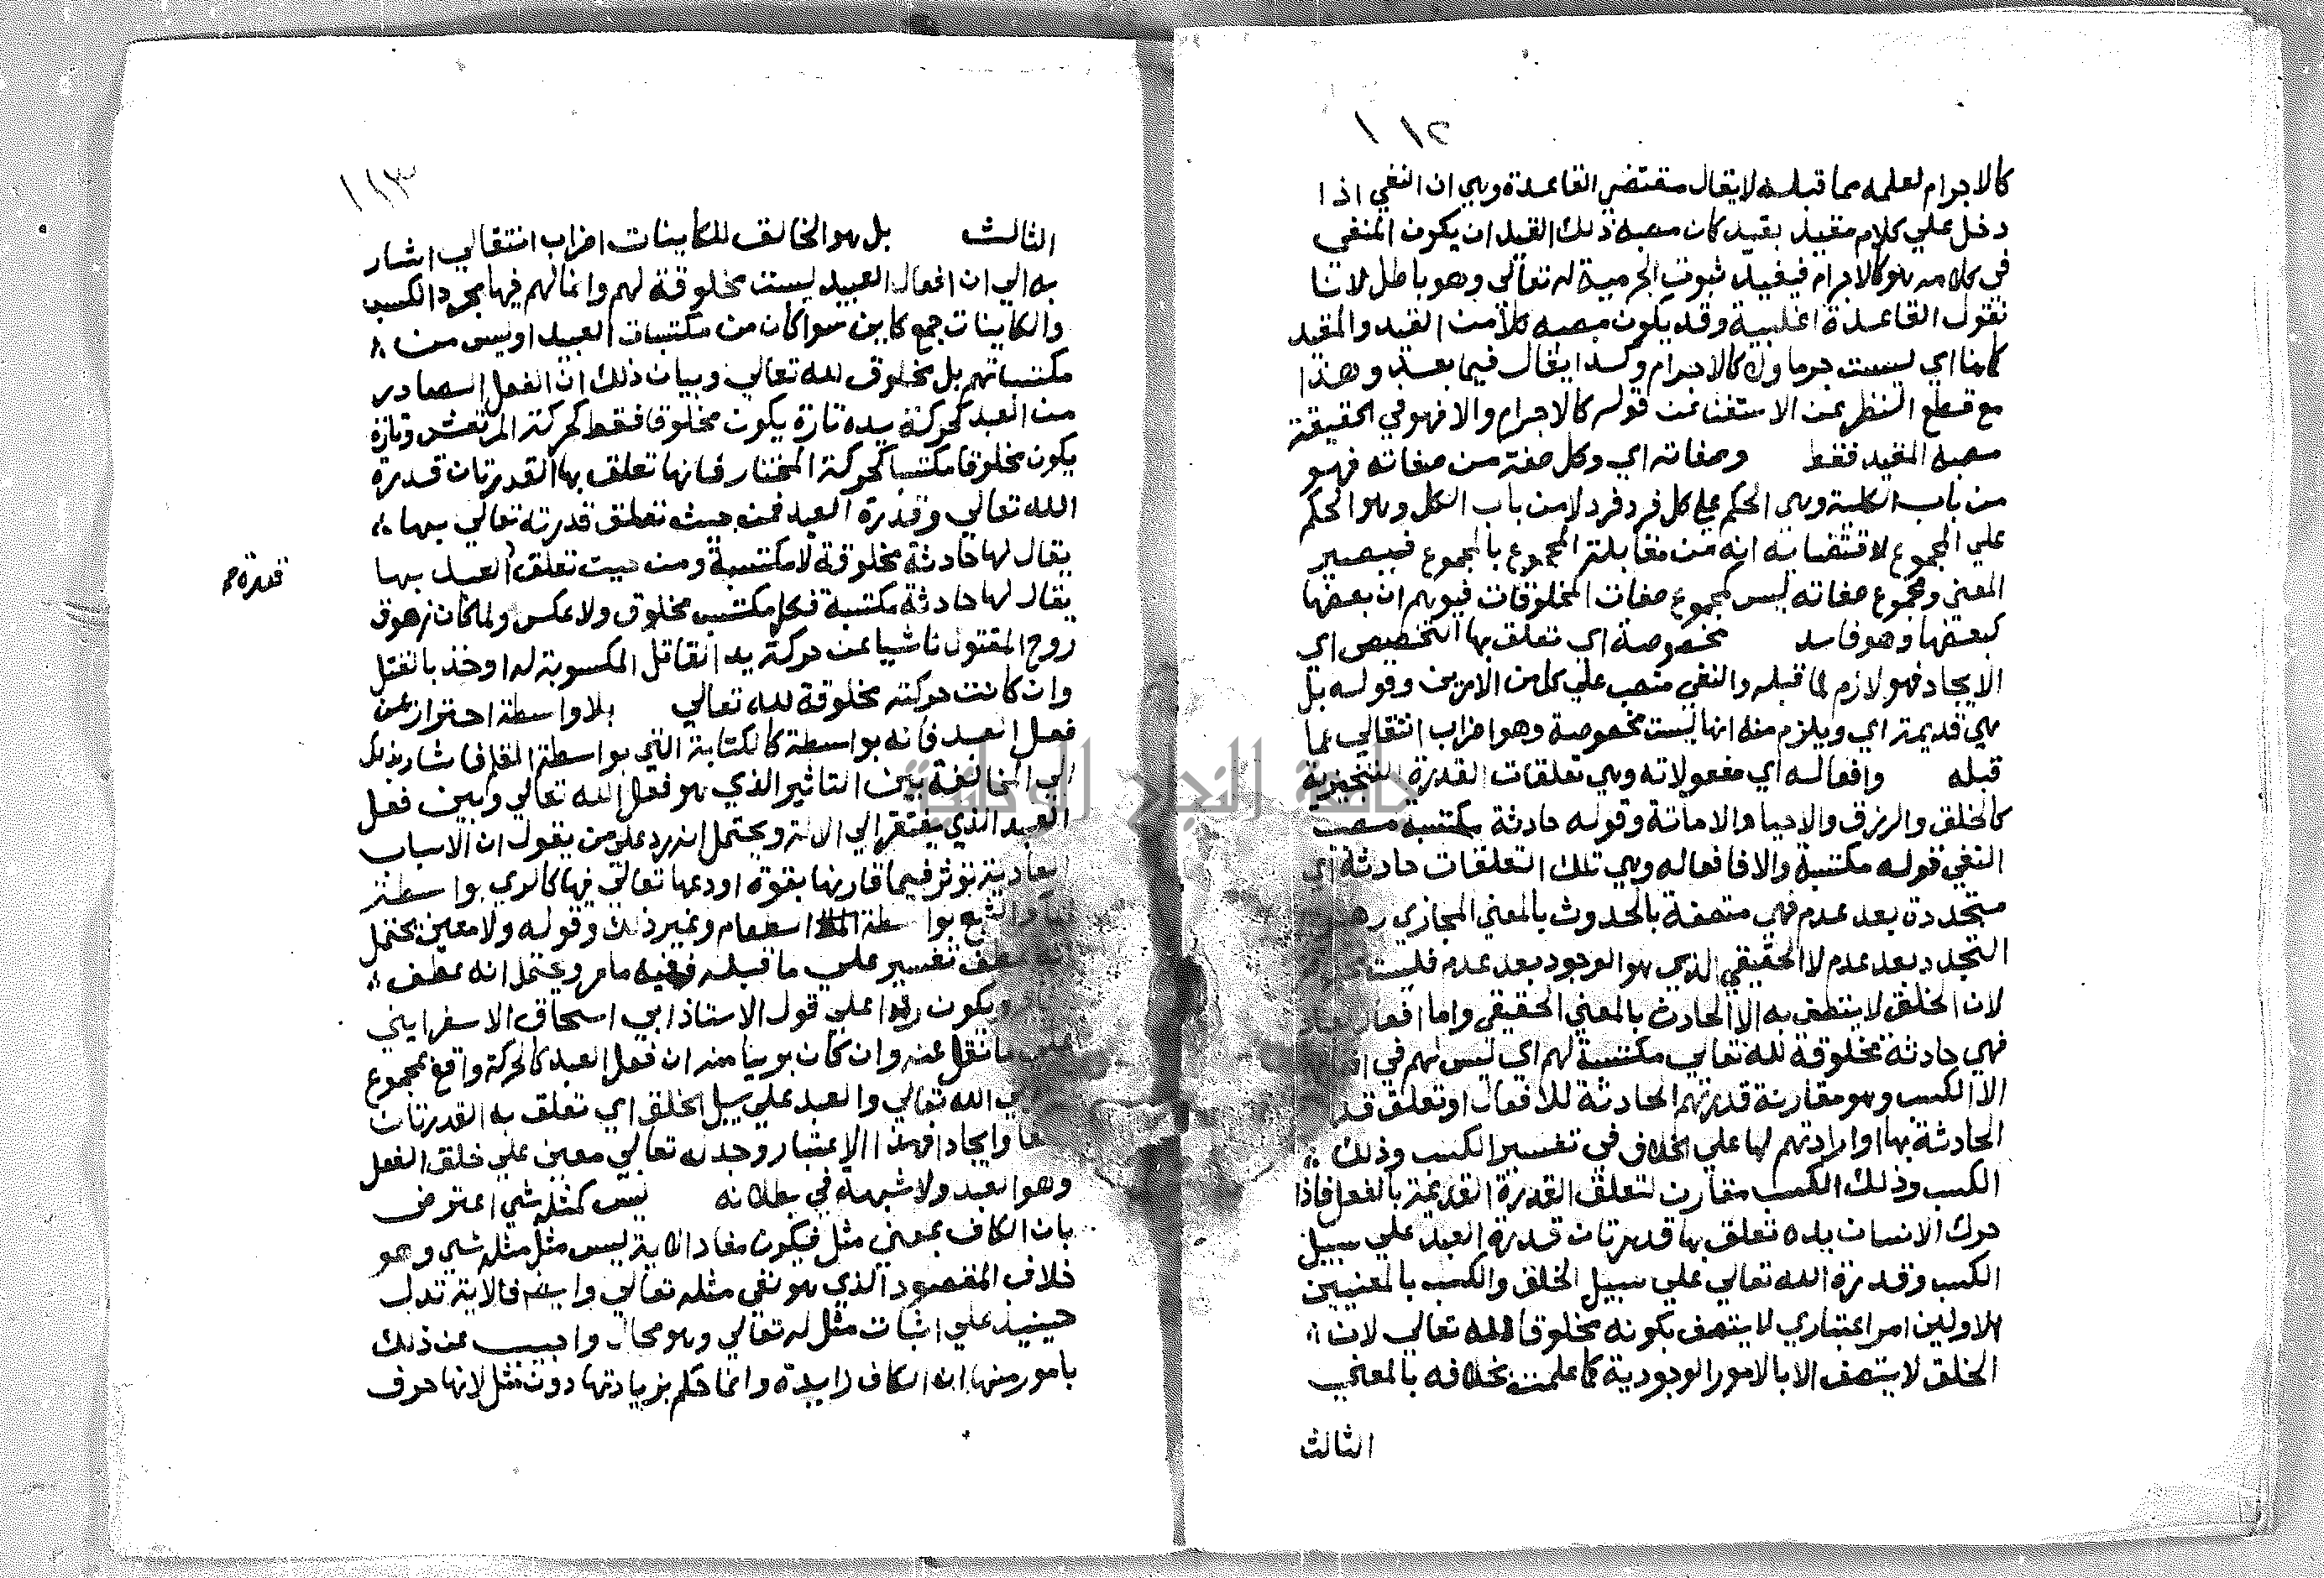 ١١٢
كالاجرام لعلمه مما قبله لا يقال مقتضي القاعدة وهي ان النفي اذا
دخل علي كلام مقيد بقيد كان مصبه ذلك القيد ان يكون المنفي
في كلامه هو كالاجرام فيفيد ثبوت الجرمية له تعالي وهو باطل لاننا
نقول القاعدة اغلبية وقد يكون مصبه كلا من القيد والمقيد
كما هنا اي ليست جرما ولا كالاجرام وكذا يقال فيما بعد وهذا
مع قطع النظر عن الاستغنا عن قوله كالاجرام والا فهو في الحقيقة
مصبه المقيد فقط وصفاته اي وكل صفة من صفاته فهو
من باب الكلية وهي الحكم علي كل فرد فرد لا من باب الكل وهو الحكم
علي المجموع لاقتضائه انه من مقابلة المجموع بالمجموع فيصير
المعني ومجموع صفاته ليس كمجموع صفات المخلوقات فيوهم ان بعضها
كبعضها وهو فاسد مخصوصة اي تعلق بها التخصيص اي
الايجاد فهو لازم لما قبله والنفي منصب علي كل من الامرين وقوله بل
هي قديمة اي ويلزم منه انها ليست مخصوصة وهو اضراب انتقالي عما
قبله وافعاله اي مفعولاته وهي تعلقات القدرة التنجيزية
كالخلق والرزق والاحيا والاماتة وقوله حادثة مكتسبة مصب
النفي قوله مكتسبة والا فافعاله وهي تلك التعلقات حادثة اي
متجددة بعد عدم فهي متصفة بالحدوث بالمعني المجازي وهو
التجدد بعد عدم لا الحقيقي الذي هو الوجود بعد عدم فليست
لان الخلق لا يتصف به الا الحادث بالمعني الحقيقي واما افعال
فهي حادثة مخلوقة لله تعالي مكتسبة لهم اي ليس لهم في
الا الكسب وهو مقارنة قدرتهم الحادثة للافعال او تعلق
الحادثة بها او ارادتهم لها علي الخلاف في تفسير الكسب وذلك
الكسب وذلك الكسب مقارن لتعلق القدرة القديمة بالفعل فاذا
حرك الانسان يده تعلق بها قدرتان قدرة العبد علي سبيل
الكسب وقدرة الله تعالي علي سبيل الخلق والكسب بالمعنيين
الاولين امر اعتباري لا يتصف بكونه مخلوقا لله تعالي لان
الخلق لا يتصف الا بالامور الوجودية كما علمت بخلافه بالمعني
الثالث
١١٣
الثالث بل هو الخالق للكاينات اضراب انتقالي اشار
به الي ان افعال العبيد ليست مخلوقة لهم وانما لهم فيها مجرد الكسب
والكاينات جمع كاين سوا كان من مكتسبات العبيد او ليس من
مكتسباتهم بل مخلوق لله تعالي وبيان ذلك ان الفعل الصادر
من العبد كحركة يده تارة يكون مخلوقا فقط كحركة المرتعش وتارة
يكون مخلوقا مكتسبا كحركة المختار فانها تعلق بها القدرتان قدرة
الله تعالي وقدرة العبد فمن حيث تعلق قدرته تعالي بها
يقال لها حادثة مخلوقة لا مكتسبة ومن حيث تعلق العبد بها
قدرة صح
يقال لها حادثة مكتسبة فكل مكتسب مخلوق ولا عكس ولما كان زهوق
روح المقتول ناشيا عن حركة يد القاتل المكسوبة له اوخذ بالقتل
وان كانت حركته مخلوقة لله تعالي بلا واسطة احتراز عن
فعل العبد فانه بواسطة كالكتابة التي بواسطة القلم فاشار بذلك
الي المخالفة بين التاثير الذي هو فعل الله تعالي وبين فعل
العبد الذي يفتقر الي الالة ويحتمل انه رد علي من يقول ان الاسباب
العادية توثر فيما قارنها بقوة اودعها تعالي فيها كالري بواسطة
والشبع بواسطة الطعام وغير ذلك وقوله ولا معين يحتمل
تفسير علي ما قبله ففيه ما مر ويحتمل انه عطف
ويكون ردا علي قول الاستاذ ابي اسحاق الاسفرايني
ما نقل عنه وان كان بريا منه ان فعل العبد كالحركة واقع بمجموع
الله تعالي والعبد علي سبيل الخلق اي تعلق به القدرتان
وايجادا فهذا الاعتبار وجد له تعالي معين علي خلق الفعل
وهو العبد ولا شبهة في بطلانه ليس كمثله شي اعترض
بان الكاف بمعني مثل فيكون مفاد الاية ليس مثل مثله شي وهو
خلاف المقصود الذي هو نفي مثله تعالي وايضا فالاية تدل
حينيذ علي اثبات مثل له تعالي وهو محال واجيب عن ذلك
بامور منها ان الكاف زايدة وانما حكم بزيادتها دون مثل لانها حرف
جامعة النجاح الوطنية